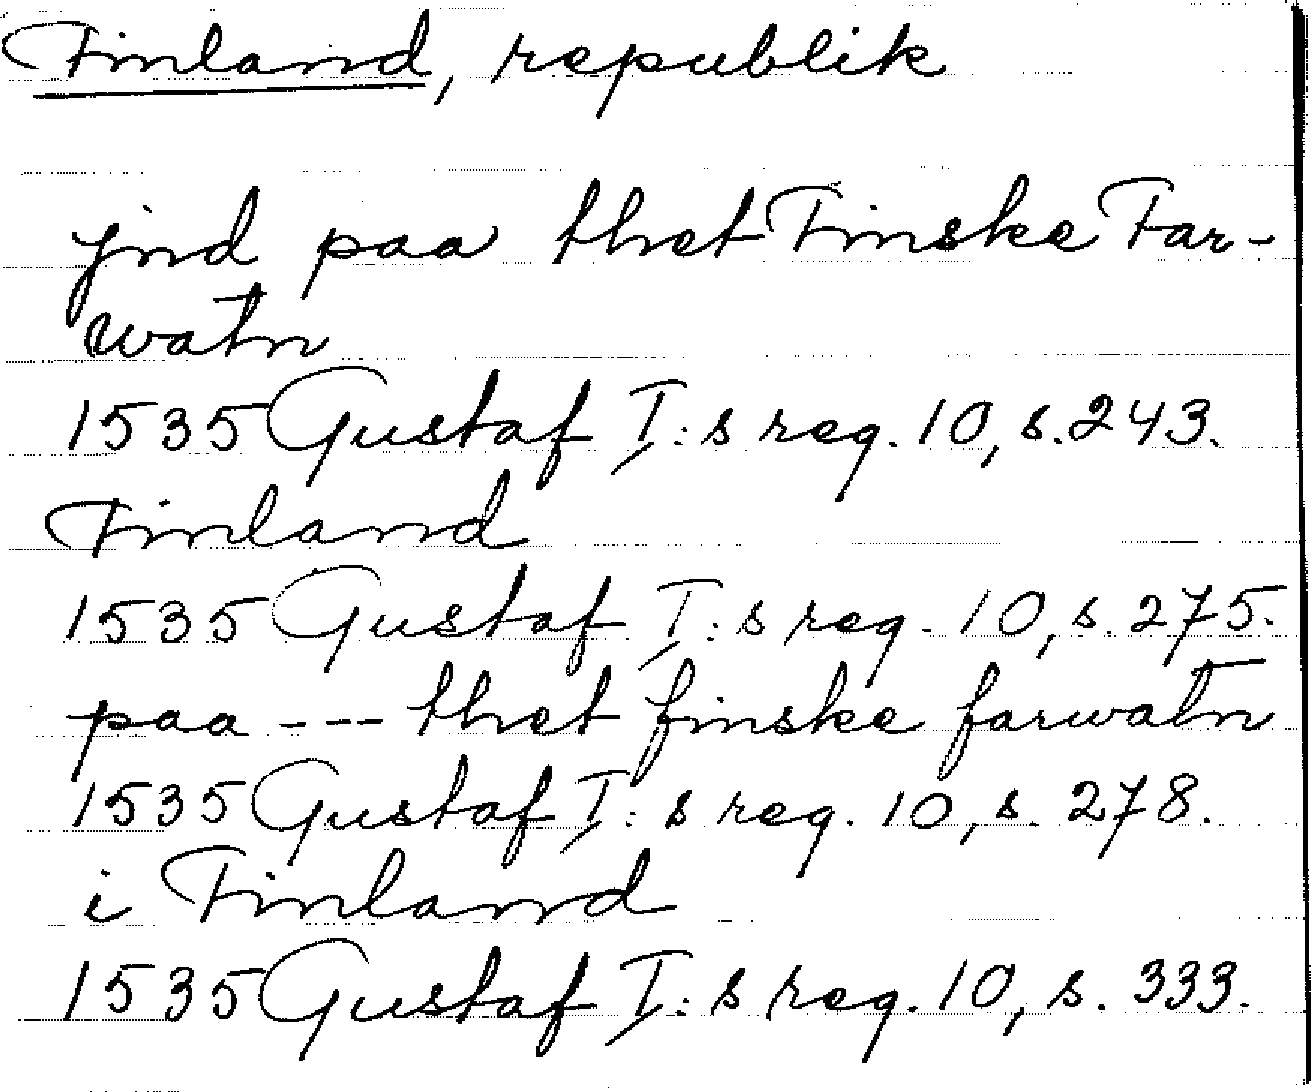 Finland, republik
jnd paa thet Finske Far-
watn̄
1535 Gustaf I:s reg. 10, s. 243.
Finland
1535 Gustaf I:s reg. 10, s. 275.
paa --- thet finske farwatn̄
1535 Gustaf I:s reg. 10, s. 278.
i Finland
1535 Gustaf I:s reg. 10, s. 333.